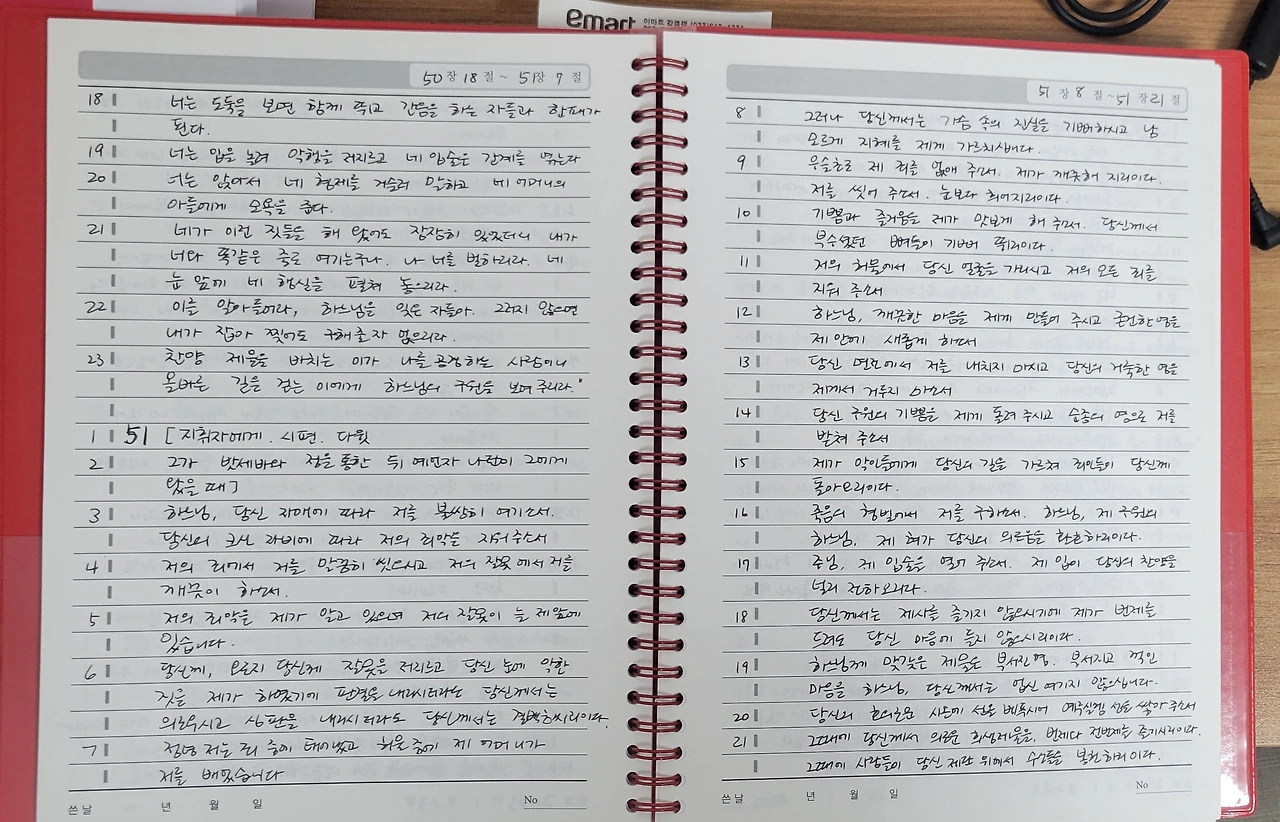 emart
50 장 18 절 ~ 51장 7 절
18 너는 도둑을 보면 함께 뛰고 간음을 하는 자들과 한패가
된다.
19 너는 입을 놀려 악행을 저지르고 네 입술은 간계를 엮는다
20 너는 앉아서 네 형제를 거슬러 말하고 네 어머니의
아들에게 모욕을 준다.
21 네가 이런 짓들을 해 왔어도 잠잠히 있었더니 내가
너와 똑같은 줄로 여기는구나. 나 너를 벌하리라. 네
눈 앞에 네 행실을 펼쳐 놓으리라.
22 이를 알아들어라, 하느님을 잊은 자들아. 그러지 않으면
내가 잡아 찢어도 구해 줄 자 없으리라.
23 찬양 제물을 바치는 이가 나를 공경하는 사람이니
올바른 길을 걷는 이에게 하느님의 구원을 보여 주리라."
1 51 [ 지휘자에게. 시편. 다윗
2 그가 밧세바와 정을 통한 뒤 예언자 나탄이 그에게
왔을 때]
3 하느님, 당신 자애에 따라 저를 불쌍히 여기소서.
당신의 크신 자비에 따라 저의 죄악을 지워 주소서
4 저의 죄에서 저를 말끔히 씻으시고 저의 잘못에서 저를
깨끗이 하소서.
5 저의 죄악을 제가 알고 있으며 저의 잘못이 늘 제 앞에
있습니다.
6 당신께, 오로지 당신께 잘못을 저지르고 당신 눈에 악한
짓을 제가 하였기에 판결을 내리시더라도 당신께서는
의로우시고 심판을 내리시더라도 당신께서는 결백하시리이다.
7 정녕 저는 죄 중에 태어났고 허물 중에 제 어머니가
저를 배었습니다
쓴 날 년 월 일 No
51 장 8 절 ~ 51 장 21 절
8 그러나 당신께서는 가슴 속의 진실을 기뻐하시고 남
모르게 지혜를 제게 가르치십니다.
9 우슬초로 제 죄를 없애 주소서. 제가 깨끗해 지리이다.
저를 씻어 주소서. 눈보다 희어지리이다.
10 기쁨과 즐거움을 제가 맛보게 해 주소서. 당신께서
부수셨던 뼈들이 기뻐 뛰리이다.
11 저의 허물에서 당신 얼굴을 가리시고 저의 모든 죄를
지워 주소서
12 하느님, 깨끗한 마음을 제게 만들어 주시고 굳건한 영을
제 안에 새롭게 하소서
13 당신 면전에서 저를 내치지 마시고 당신의 거룩한 영을
제게서 거두지 마소서
14 당신 구원의 기쁨을 제게 돌려 주시고 순종의 영으로 저를
받쳐 주소서
15 제가 악인들에게 당신의 길을 가르쳐 죄인들이 당신께
돌아오리이다.
16 죽음의 형벌에서 저를 구하소서. 하느님, 제 구원의
하느님, 제 혀가 당신의 의로움을 환호하리이다.
17 주님, 제 입술을 열어 주소서. 제 입이 당신의 찬양을
널리 전하오리다.
18 당신께서는 제사를 즐기지 않으시기에 제가 번제를
드려도 당신 마음에 들지 않으시리이다.
19 하느님께 맞갖은 제물은 부서진 영. 부서지고 꺾인
마음을 하느님, 당신께서는 업신 여기지 않으십니다.
20 당신의 호의로 시온에 선을 베푸시어 예루살렘 성을 쌓아 주소서
21 그때에 당신께서 의로운 희생제물을, 번제와 전번제를 즐기시리이다.
그때에 사람들이 당신 제단 위에서 수소들을 봉헌하리이다.
쓴 날 년 월 일 No